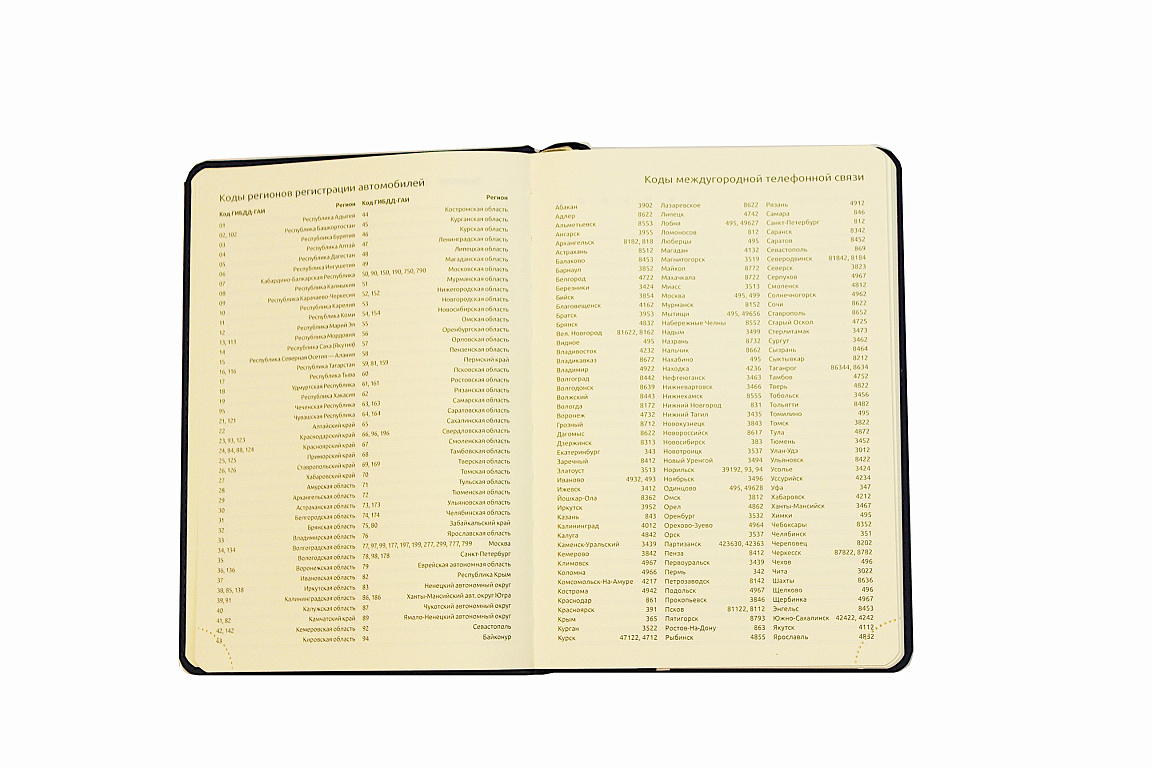 Коды регионов регистрации автомобилей
Код ГИБДД-ГАИ Регион
01 Республика Адыгея
02, 102 Республика Башкортостан
03 Республика Бурятия
04 Республика Алтай
05 Республика Дагестан
06 Республика Ингушетия
07 Кабардино-Балкарская Республика
08 Республика Калмыкия
09 Республика Карачаево-Черкесия
10 Республика Карелия
11 Республика Коми
12 Республика Марий Эл
13, 113 Республика Мордовия
14 Республика Саха (Якутия)
15 Республика Северная Осетия — Алания
16, 116 Республика Татарстан
17 Республика Тыва
18 Удмуртская Республика
19 Республика Хакасия
95 Чеченская Республика
21, 121 Чувашская Республика
22 Алтайский край
23, 93, 123 Краснодарский край
24, 84, 88, 124 Красноярский край
25, 125 Приморский край
26, 126 Ставропольский край
27 Хабаровский край
28 Амурская область
29 Архангельская область
30 Астраханская область
31 Белгородская область
32 Брянская область
33 Владимирская область
34, 134 Волгоградская область
35 Вологодская область
36, 136 Воронежская область
37 Ивановская область
38, 85, 138 Иркутская область
39, 91 Калининградская область
40 Калужская область
41, 82 Камчатский край
42, 142 Кемеровская область
43 Кировская область
Код ГИБДД-ГАИ Регион
44 Костромская область
45 Курганская область
46 Курская область
47 Ленинградская область
48 Липецкая область
49 Магаданская область
50, 90, 150, 190, 750, 790 Московская область
51 Мурманская область
52, 152 Нижегородская область
53 Новгородская область
54, 154 Новосибирская область
55 Омская область
56 Оренбургская область
57 Орловская область
58 Пензенская область
59, 81, 159 Пермский край
60 Псковская область
61, 161 Ростовская область
62 Рязанская область
63, 163 Самарская область
64, 164 Саратовская область
65 Сахалинская область
66, 96, 196 Свердловская область
67 Смоленская область
68 Тамбовская область
69, 169 Тверская область
70 Томская область
71 Тульская область
72 Тюменская область
73, 173 Ульяновская область
74, 174 Челябинская область
75, 80 Забайкальский край
76 Ярославская область
77, 97, 99, 177, 197, 199, 277, 299, 777, 799 Москва
78, 98, 178 Санкт-Петербург
79 Еврейская автономная область
82 Республика Крым
83 Ненецкий автономный округ
86, 186 Ханты-Мансийский авт. округ Югра
87 Чукотский автономный округ
89 Ямало-Ненецкий автономный округ
92 Севастополь
94 Байконур
Коды междугородной телефонной связи
Абакан 3902
Адлер 8622
Альметьевск 8553
Ангарск 3955
Архангельск 8182, 818
Астрахань 8512
Балаково 8453
Барнаул 3852
Белгород 4722
Березники 3424
Бийск 3854
Благовещенск 4162
Братск 3953
Брянск 4832
Вел. Новгород 81622, 8162
Видное 495
Владивосток 4232
Владикавказ 8672
Владимир 4922
Волгоград 8442
Волгодонск 8639
Волжский 8443
Вологда 8172
Воронеж 4732
Грозный 8712
Дагомыс 8622
Дзержинск 8313
Екатеринбург 343
Заречный 8412
Златоуст 3513
Иваново 4932, 493
Ижевск 3412
Йошкар-Ола 8362
Иркутск 3952
Казань 843
Калининград 4012
Калуга 4842
Каменск-Уральский 3439
Кемерово 3842
Климовск 4967
Коломна 4966
Комсомольск-На-Амуре 4217
Кострома 4942
Краснодар 861
Красноярск 391
Крым 365
Курган 3522
Курск 47122, 4712
Лазаревское 8622
Липецк 4742
Лобня 495, 49627
Ломоносов 812
Люберцы 495
Магадан 4132
Магнитогорск 3519
Майкоп 8772
Махачкала 8722
Миасс 3513
Москва 495, 499
Мурманск 8152
Мытищи 495, 49656
Набережные Челны 8552
Надым 3499
Назрань 8732
Нальчик 8662
Нахабино 495
Находка 4236
Нефтеюганск 3463
Нижневартовск 3466
Нижнекамск 8555
Нижний Новгород 831
Нижний Тагил 3435
Новокузнецк 3843
Новороссийск 8617
Новосибирск 383
Новотроицк 3537
Новый Уренгой 3494
Норильск 39192, 93, 94
Ноябрьск 3496
Одинцово 495, 49628
Омск 3812
Орел 4862
Оренбург 3532
Орехово-Зуево 4964
Орск 3537
Партизанск 423630, 42363
Пенза 8412
Первоуральск 3439
Пермь 342
Петрозаводск 8142
Подольск 4967
Прокопьевск 3846
Псков 81122, 8112
Пятигорск 8793
Ростов-На-Дону 863
Рыбинск 4855
Рязань 4912
Самара 846
Санкт-Петербург 812
Саранск 8342
Саратов 8452
Севастополь 869
Северодвинск 81842, 8184
Северск 3823
Серпухов 4967
Смоленск 4812
Солнечногорск 4962
Сочи 8622
Ставрополь 8652
Старый Оскол 4725
Стерлитамак 3473
Сургут 3462
Сызрань 8464
Сыктывкар 8212
Таганрог 86344, 8634
Тамбов 4752
Тверь 4822
Тобольск 3456
Тольятти 8482
Томилино 495
Томск 3822
Тула 4872
Тюмень 3452
Улан-Удэ 3012
Ульяновск 8422
Усолье 3424
Уссурийск 4234
Уфа 347
Хабаровск 4212
Ханты-Мансийск 3467
Химки 495
Чебоксары 8352
Челябинск 351
Череповец 8202
Черкесск 87822, 8782
Чехов 496
Чита 3022
Шахты 8636
Щелково 496
Щербинка 4967
Энгельс 8453
Южно-Сахалинск 42422, 4242
Якутск 4112
Ярославль 4852